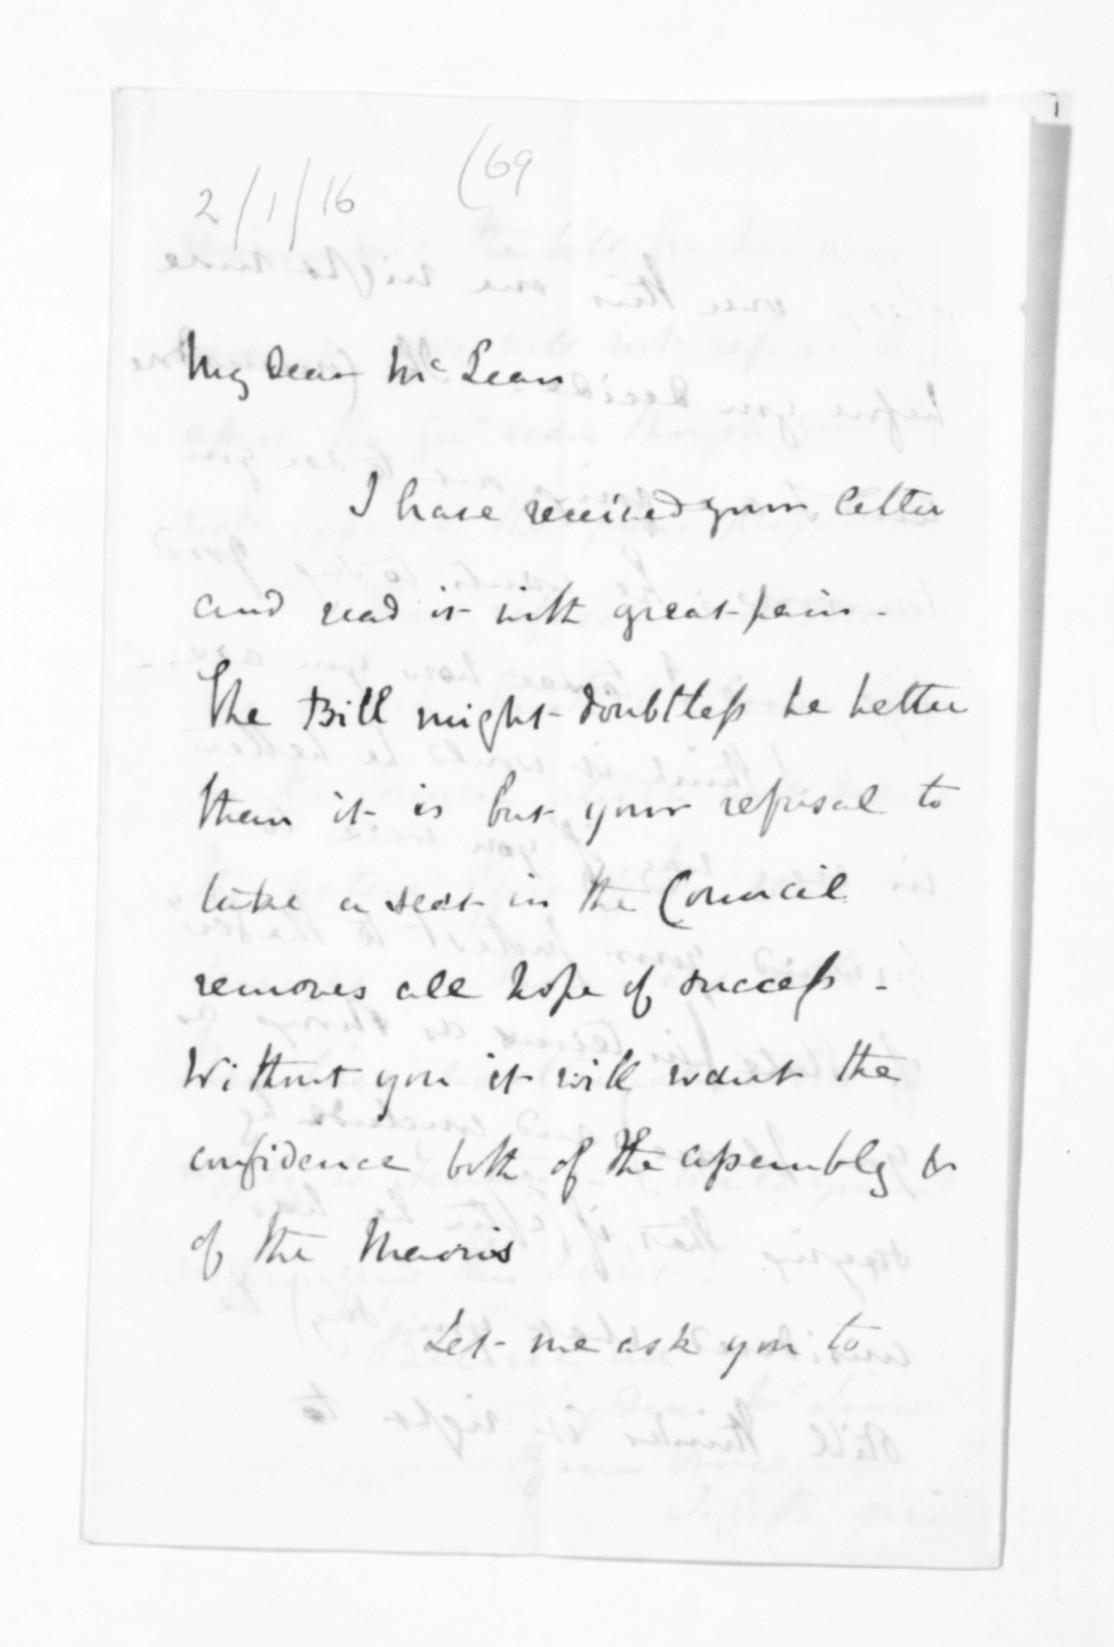 2/1/16 (69
My Dear McLean
I have received your letter
and read it with great pain -
The Bill might doubtless be better
than it is but your refusal to
take a seat in the Council
removes all hope of success -
Without you it will want the
confidence both of the assembly &
of the Maoris
Let me ask you to